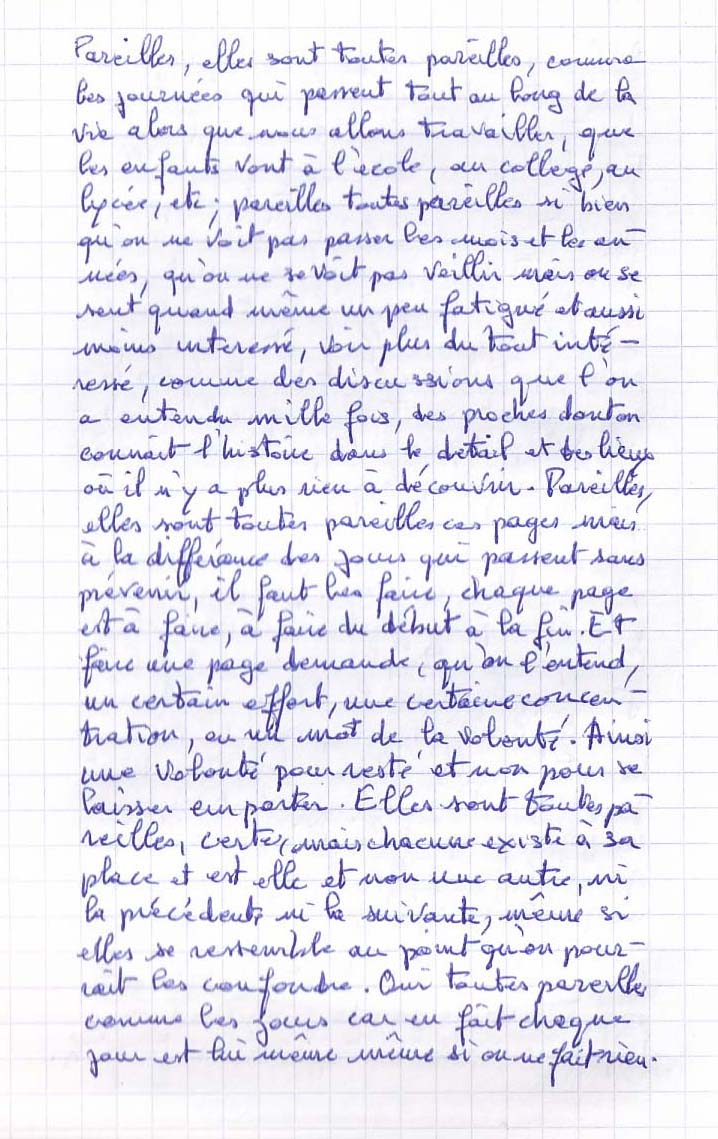 Pareilles, elles sont toutes pareilles, comme
les journées qui passent tout au long de la
vie alors que nous allons travailler, que
les enfants vont à l'école, au collège, au
lycée, etc; pareilles toutes pareilles si bien
qu'on ne voit pas passer les mois et les an-
nées, qu'on ne se voit pas veillir mais on se
sent quand même un peu fatigué et aussi
moins interessé, voir plus du tout inté-
ressé, comme des discussions que l'on
a entendu mille fois, des proches dont on
connait l'histoire dans le détail et des lieux
où il n'y a plus rien à découvrir. Pareilles,
elles sont toutes pareilles ces pages mais
à la différence des jours qui passent sans
prévenir, il faut les faire, chaque page
est à faire, à faire du début à la fin. Et
faire une page demande, qu'on l'entend,
un certain effort, une certaine concen-
tration, en un mot de la volonté. Ainsi
une volonté pour resté et non pour se
laisser emporter. Elles sont toutes pa-
reilles, certes, mais chacune existe à sa
place et est elle et non une autre, ni
la précédente ni la suivante, même si
elles se ressemble au point qu'on pour-
rait les confondre. Oui toutes pareilles
comme les jours car en fait chaque
jour est lui même même si on ne fait rien.